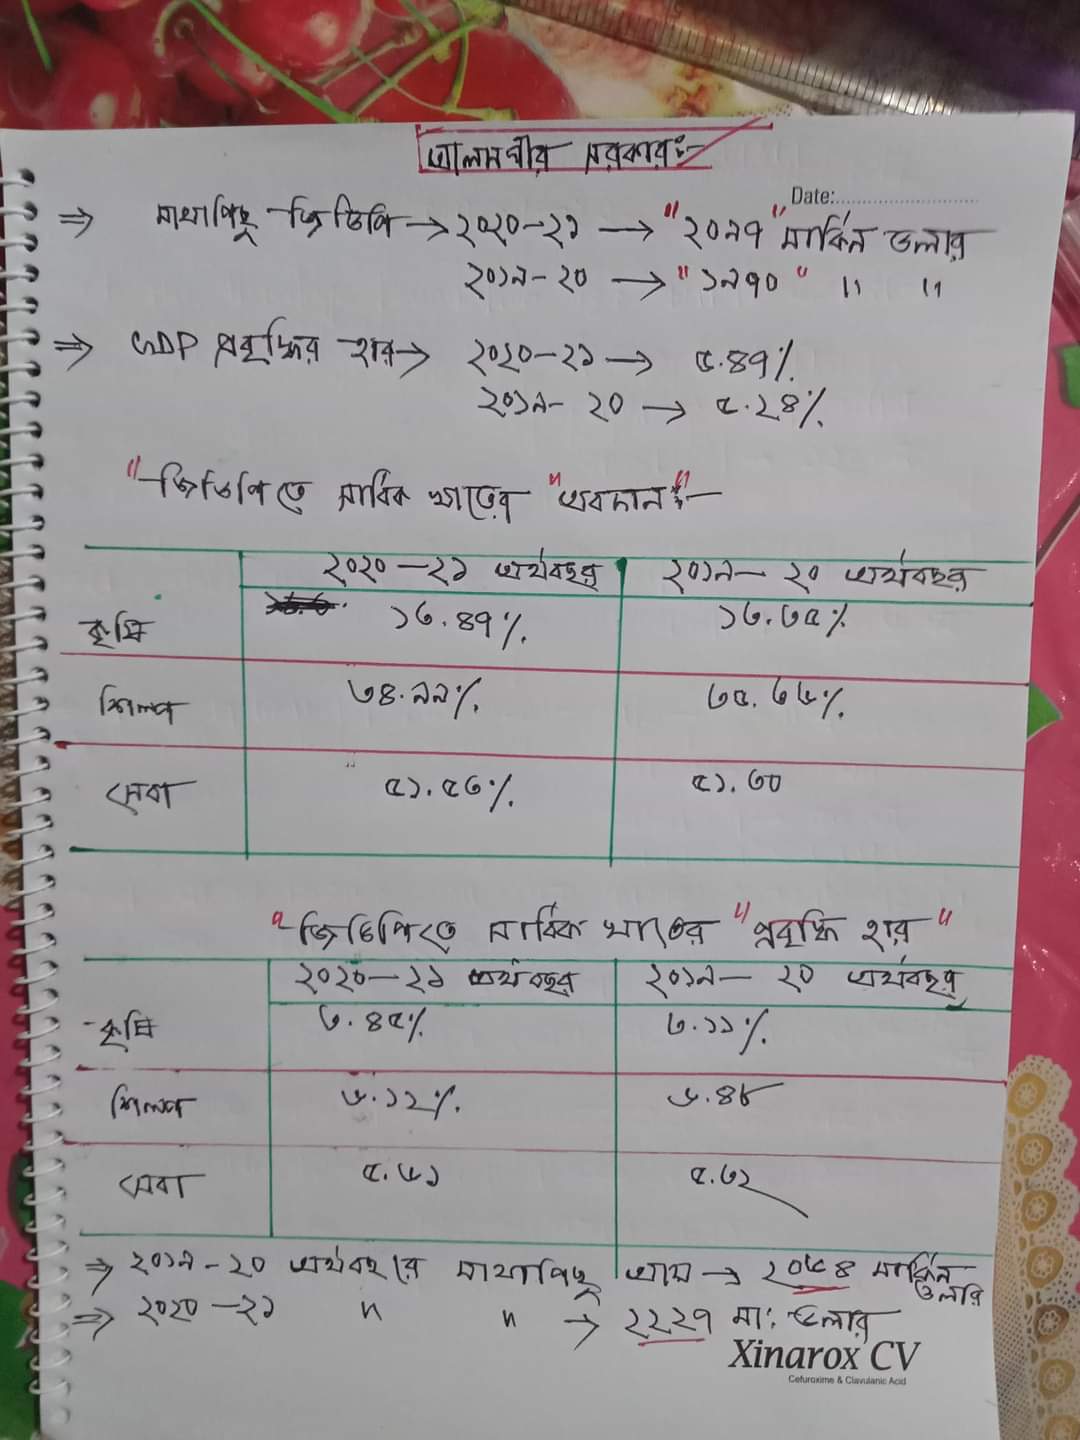 আলমগীর সরকারঃ-
Date:
⇒ মাথাপিছু জিডিপি → ২০২০-২১ → "২০৯৭" মার্কিন ডলার
২০১৯-২০ → "১৯৭০" " "
⇒ GDP প্রবৃদ্ধির হার → ২০২০-২১ → ৫.৪৭%
২০১৯-২০ → ৫.২৪%
"জিডিপিতে সার্বিক খাতের "অবদান"ঃ-
২০২০-২১ অর্থবছর ২০১৯-২০ অর্থবছর
কৃষি ১৩.৪৭% ১৩.৩৫%
শিল্প ৩৪.৯৯% ৩৫.৩৬%
সেবা ৫১.৫৩% ৫১.৩০
"জিডিপিতে সার্বিক খাতের "প্রবৃদ্ধি হার"
২০২০-২১ অর্থবছর ২০১৯-২০ অর্থবছর
কৃষি ৩.৪৫% ৩.১১%
শিল্প ৬.১২% ৬.৪৮
সেবা ৫.৬১ ৫.৩২
⇒ ২০১৯-২০ অর্থবছরে মাথাপিছু আয় → ২০৬৪ মার্কিন ডলার
⇒ ২০২০-২১ " " → ২২২৭ মা: ডলার
Xinarox CV
Cefuroxime & Clavulanic Acid